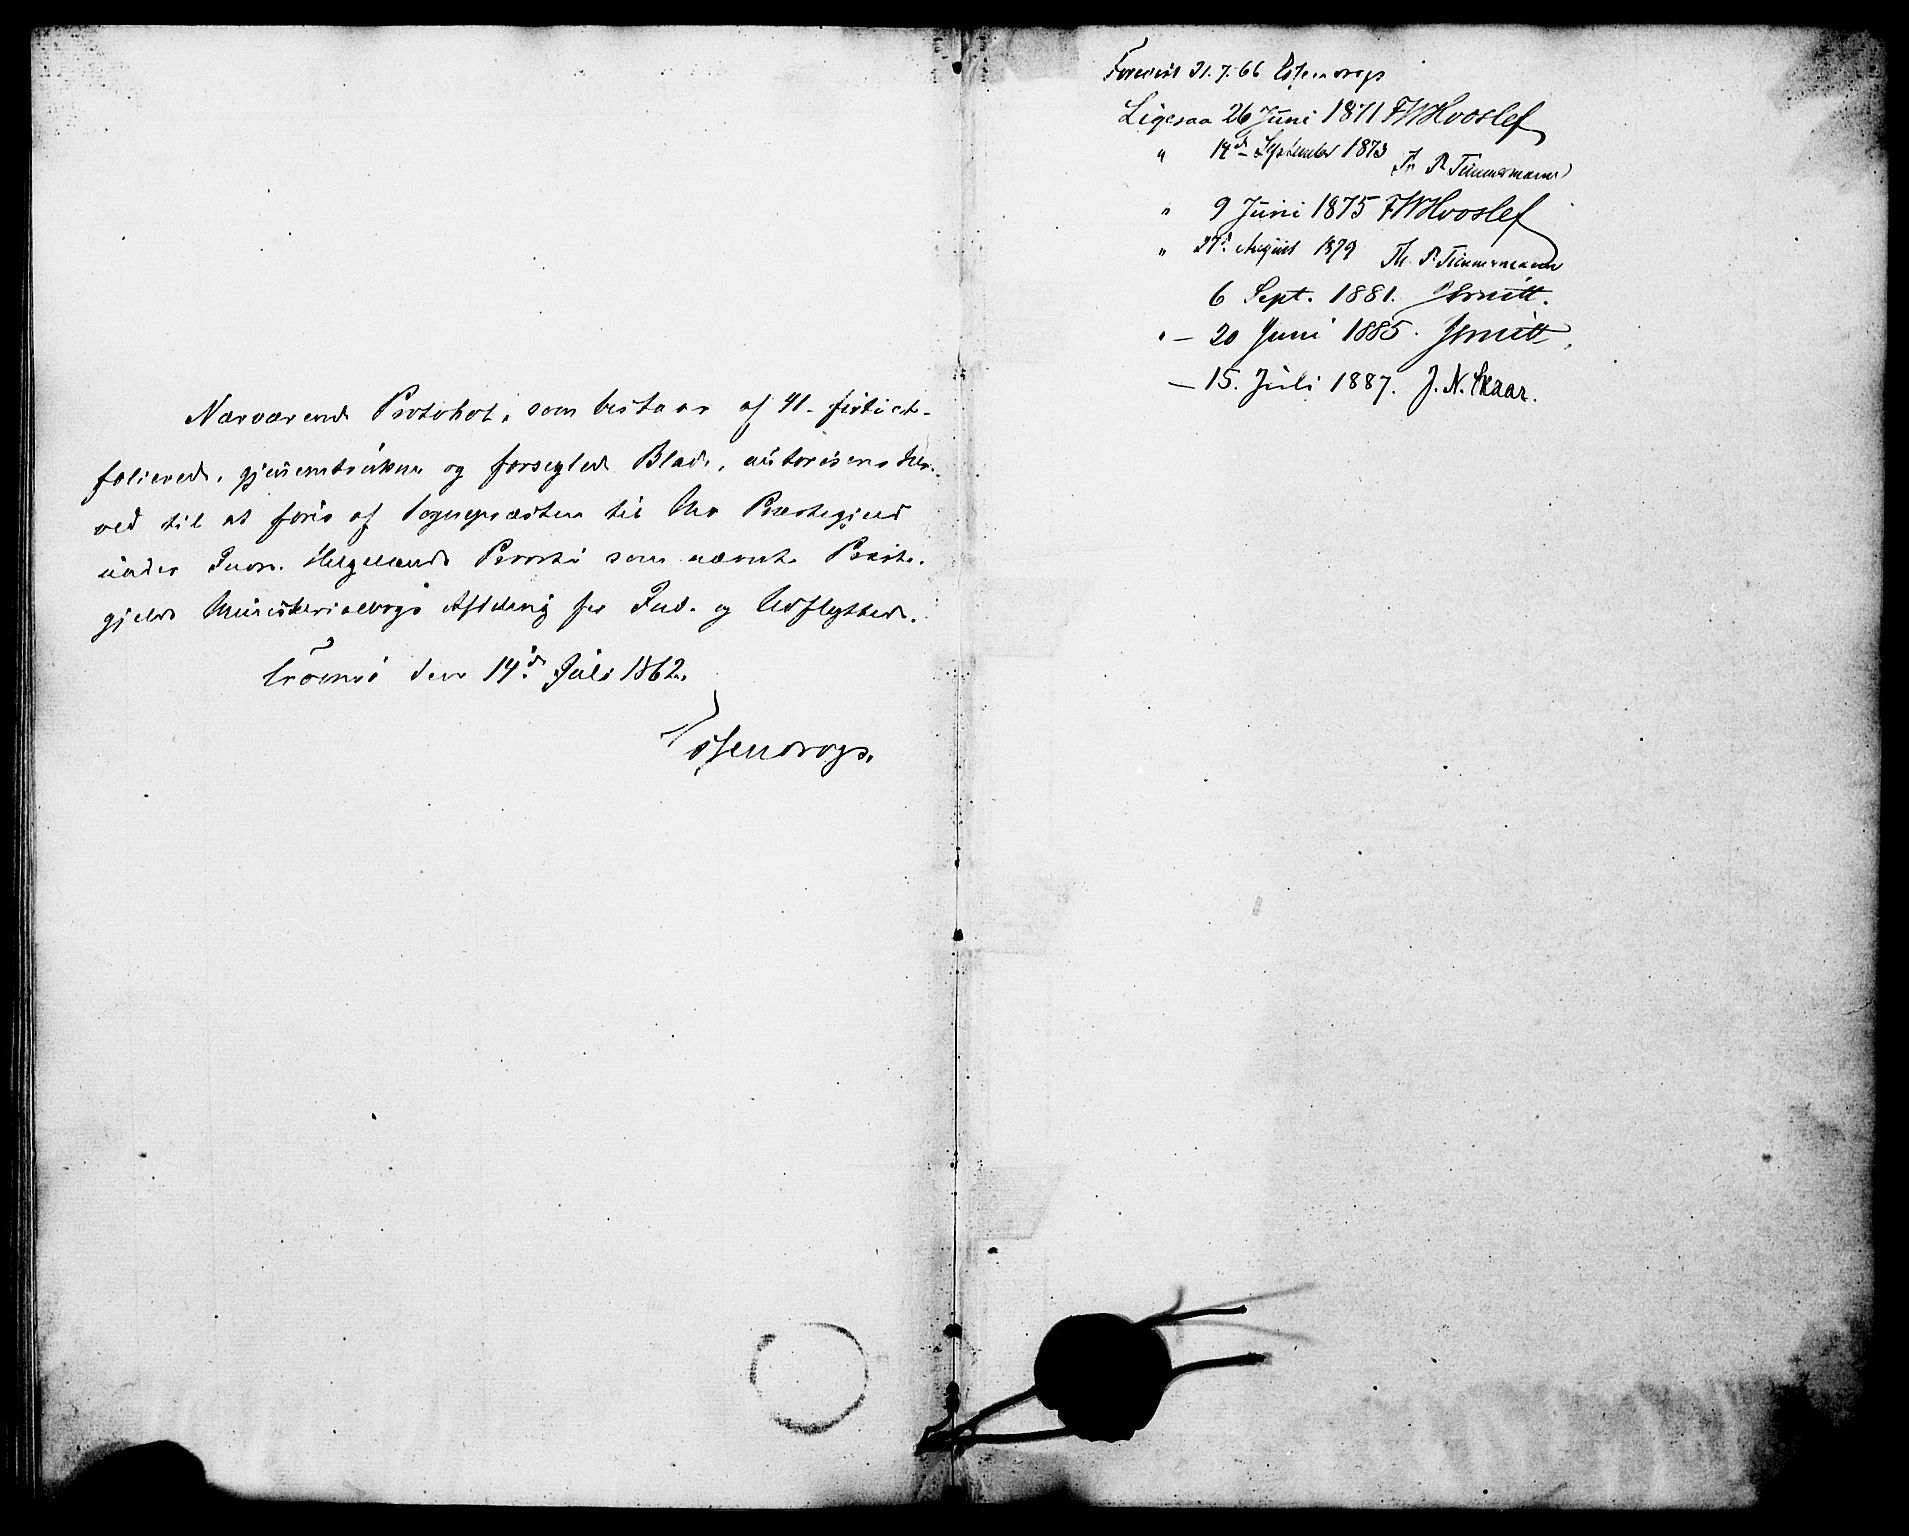 Nærværende Protokol, som bestaar af 41- førtiet-
folierede, gjennemtrukne og forseglede Blade, autoriseres her-
ved til at føres af Sognepræsten til Præstegjeld
under Helgelands Provsti som nævnte Præste-
gjelds Ministerialbogs Afdeling for Ind- og Udflyttede.
Tromsø den 14de Juli 1862.
Essendrop.
Foreviist 21.7.66 Essendrop
Ligesaa 26 Juni 1871 FWHvoslef
" 14de September 1873 Th. P. Timmermann
" 9 Juni 1875 FWHvoslef
" 27d. August 1879 Th. P. Timmermann
6 Sept. 1881. JSmitt.
" — 20 Juni 1885. JSmitt.
— 15. Juli 1887. J. N. Skaar.